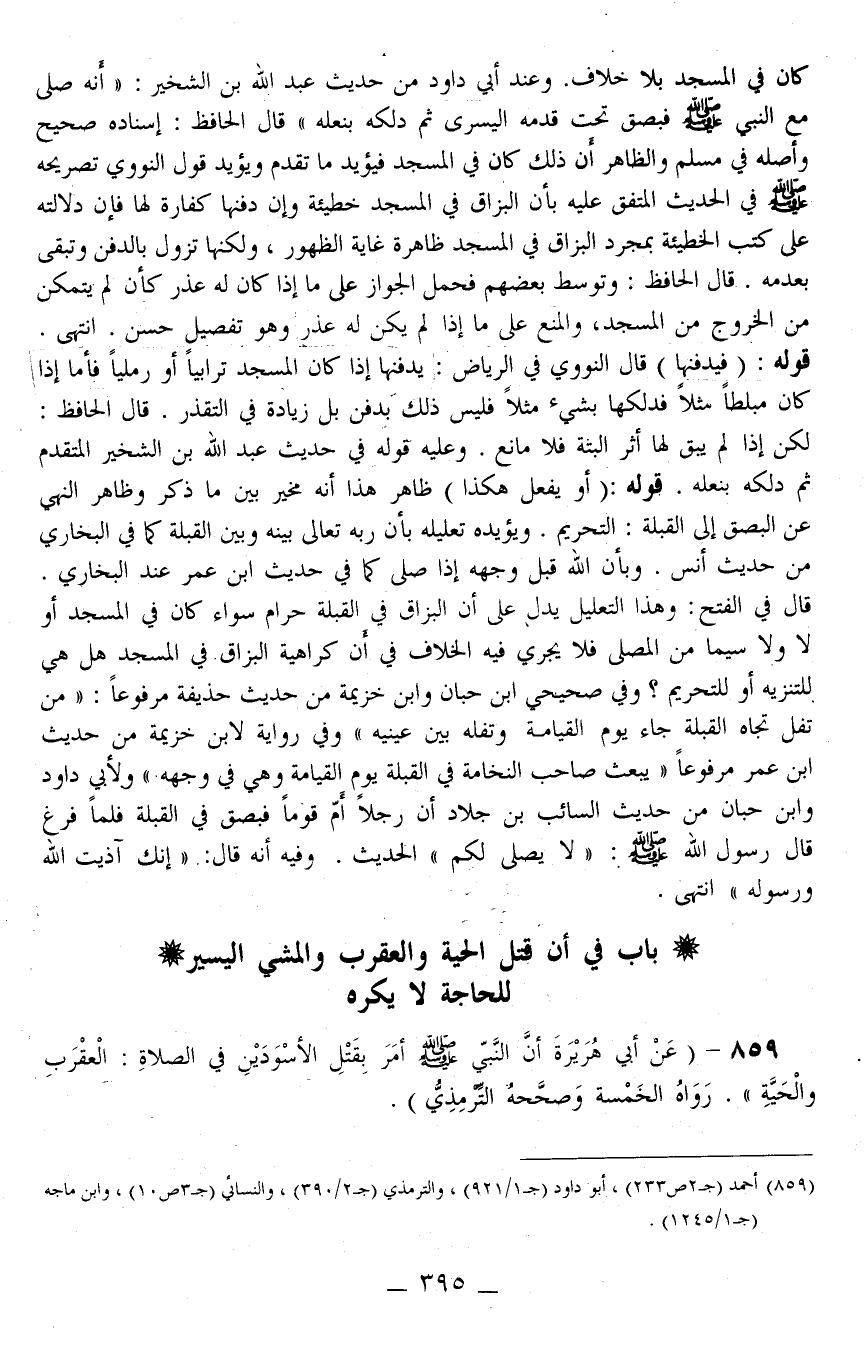 كان في المسجد بلا خلاف. وعند أبي داود من حديث عبد الله بن الشخير : « أَنه صلى
مع النبي ﷺ فبصق تحت قدمه اليسرى ثم دلكه بنعله » قال الحافظ : إسناده صحيح
وأصله في مسلم والظاهر أَن ذلك كان في المسجد فيؤيد ما تقدم ويؤيد قول النووي تصريحه
ﷺ في الحديث المتفق عليه بأن البزاق في المسجد خطيئة وإن دفنها كفارة لها فإن دلالته
على كتب الخطيئة بمجرد البزاق في المسجد ظاهرة غاية الظهور ، ولكنها تزول بالدفن وتبقى
بعدمه . قال الحافظ : وتوسط بعضهم فحمل الجواز على ما إذا كان له عذر كأن لم يتمكن
من الخروج من المسجد، والمنع على ما إذا لم يكن له عذر وهو تفصيل حسن . انتهى .
قوله : ( فيدفنها ) قال النووي في الرياض : يدفنها إذا كان المسجد ترابياً أو رملياً فأما إذا
كان مبلطاً مثلاً فدلكها بشيء مثلاً فليس ذلك بدفن بل زيادة في التقذر . قال الحافظ :
لكن إذا لم يبق لها أثر البثة فلا مانع . وعليه قوله في حديث عبد الله بن الشخير المتقدم
ثم دلكه بنعله . قوله :( أو يفعل هكذا ) ظاهر هذا أنه مخير بين ما ذكر وظاهر النهي
عن البصق إلى القبلة : التحريم . ويؤيده تعليله بأن ربه تعالى بينه وبين القبلة كما في البخاري
من حديث أنس . وبأن الله قبل وجهه إذا صلى كما في حديث ابن عمر عند البخاري .
قال في الفتح: وهذا التعليل يدل على أن البزاق في القبلة حرام سواء كان في المسجد أو
لا ولا سيما من المصلى فلا يجري فيه الخلاف في أَن كراهية البزاق في المسجد هل هي
للتنزيه أو للتحريم ؟ وفي صحيحي ابن حبان وابن خزيمة من حديث حذيفة مرفوعاً : « من
تفل تجاه القبلة جاء يوم القيامة وتفله بين عينيه » وفي رواية لابن خزيمة من حديث
ابن عمر مرفوعاً « يبعث صاحب النخامة في القبلة يوم القيامة وهي في وجهه » ولأبي داود
وابن حبان من حديث السائب بن جلاد أن رجلاً أَمّ قوماً فبصق في القبلة فلماً فرغ
قال رسول الله ﷺ : « لا يصلى لكم » الحديث . وفيه أنه قال: « إنك آذيت الله
ورسوله » انتهى .
باب في أن قتل الحية والعقرب والمشي اليسير
للحاجة لا يكره
٨٥٩ – ( عَنْ أبي هُرَيْرَةَ أنَّ النَّبيّ ﷺ أمَرَ بِقَتْلِ الأسْوَدَيْنِ في الصلاةِ : الْعقْرَبِ
والْحَيَّةِ » . رَوَاهُ الخَمْسة وَصحَّحهُ التِّرْمِذِيُّ ) .
(٨٥٩) أحمد (جـ٢ص٢٣٣) ، أبو داود (جـ٩٢١/١) ، والترمذي (جـ٣٩٠/٢) ، والنسائي (جـ٣ص١٠) ، وابن ماجه
(جـ١٢٤٥/١) .
– ٣٩٥ –